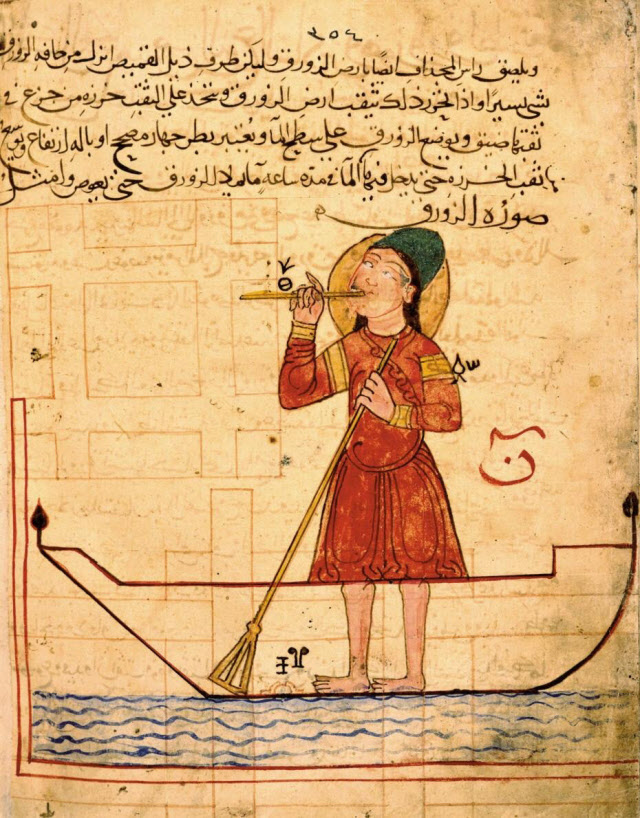 ٢٥٤
ويلصق راس المجذاف ايضا بارض الزورق وليكن طرف ذيل القميص انزل من حافه الزورق
شى يسير او اذا تحرر ذلك يثقب ارض الزورق ويتخذ على الثقب خرزه من جزع فى
ثقبها ضيق ويوضع الزورق على سطح الما ويعتبر بطرجهاره صحيح او باله ارتفاع ويوسع
ثقب الخرزه حتى يدخل فيها الما فى مده ساعه ما يملا الزورق حتى يغوص وامثل
صوره الزورق